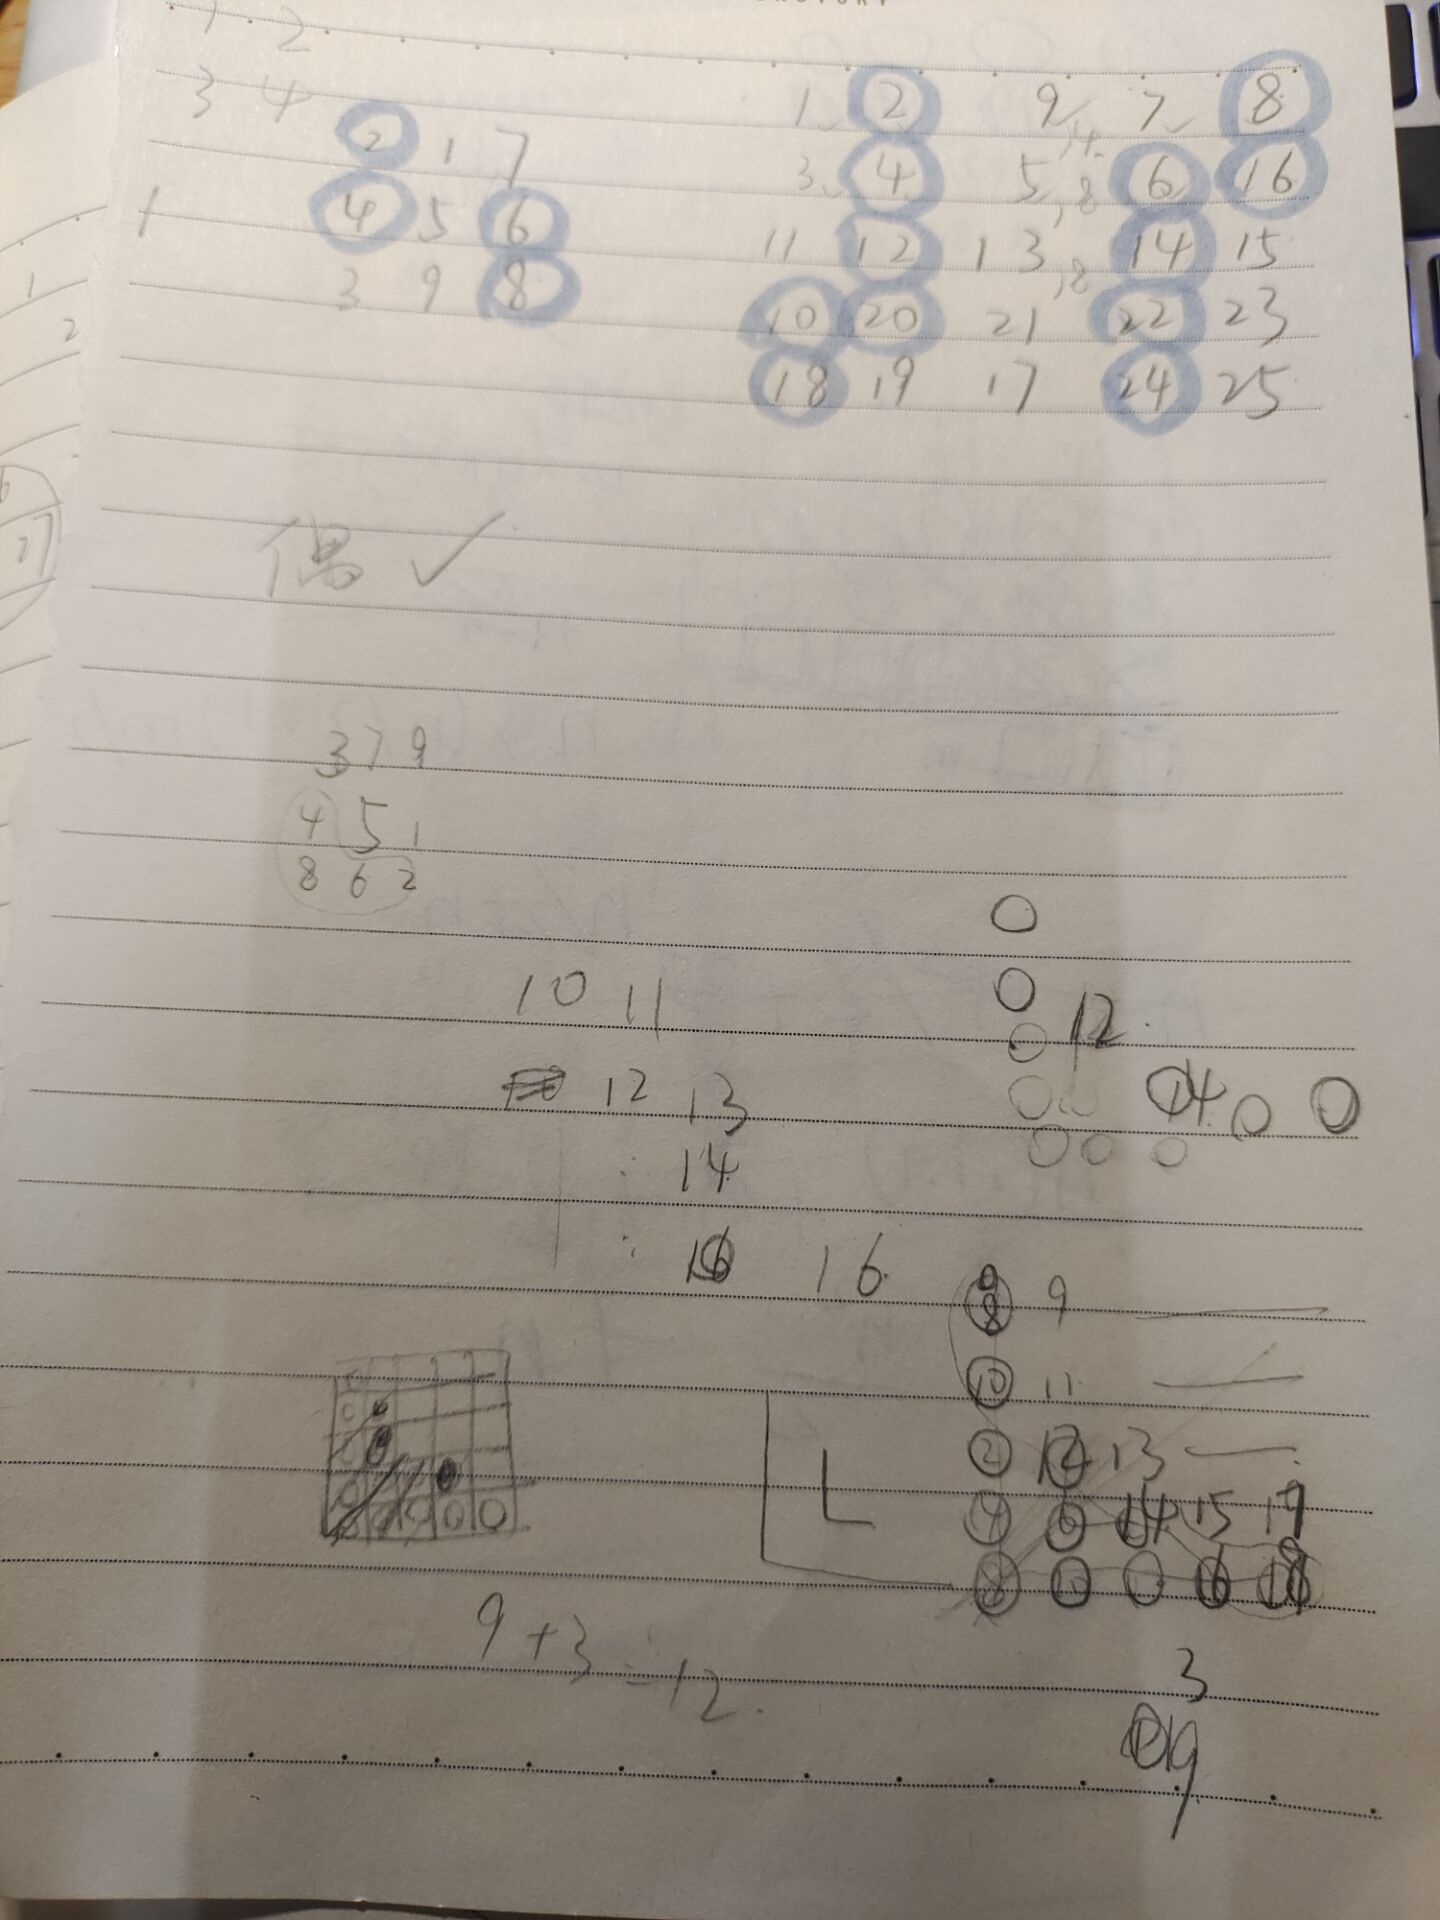 1 2
3 4
1 2 9 7 8
2 1 7
3 4 5 6 16
4 5 6
11 12 13 14 15
3 9 8
10 20 21 22 23
18 19 17 24 25
1
1
2
偶 ✓
3 7 9
4 5 1
8 6 2
10 11
12
12 13
14
14
16 16
8 9
10 11
2 12 13
L
4 6 14 15 17
8 16 18
9 + 3 = 12.
3
19